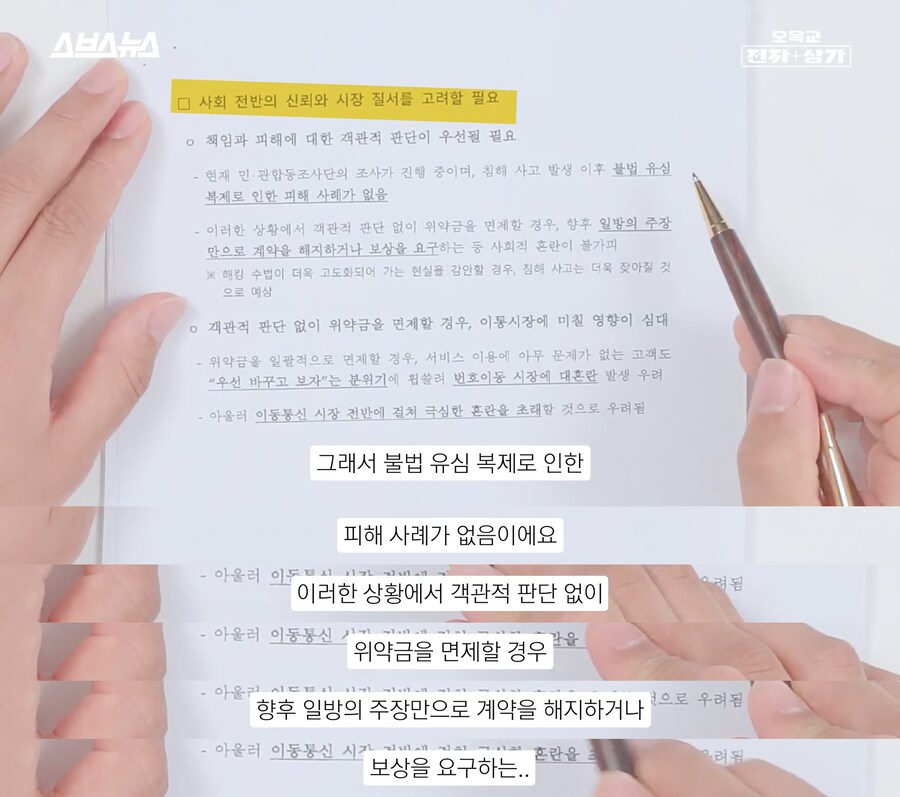 스브스뉴스
오목교
전자+상가
□ 사회 전반의 신뢰와 시장 질서를 고려할 필요
ㅇ 책임과 피해에 대한 객관적 판단이 우선될 필요
- 현재 민·관합동조사단의 조사가 진행 중이며, 침해 사고 발생 이후 불법 유심
복제로 인한 피해 사례가 없음
- 이러한 상황에서 객관적 판단 없이 위약금을 면제할 경우, 향후 일방의 주장
만으로 계약을 해지하거나 보상을 요구하는 등 사회적 혼란이 불가피
※ 해킹 수법이 더욱 고도화되어 가는 현실을 감안할 경우, 침해 사고는 더욱 잦아질 것
으로 예상
ㅇ 객관적 판단 없이 위약금을 면제할 경우, 이통시장에 미칠 영향이 심대
- 위약금을 일괄적으로 면제할 경우, 서비스 이용에 아무 문제가 없는 고객도
“우선 바꾸고 보자”는 분위기에 휩쓸려 번호이동 시장에 대혼란 발생 우려
- 아울러 이동통신 시장 전반에 걸쳐 극심한 혼란을 초래할 것으로 우려됨
그래서 불법 유심 복제로 인한
피해 사례가 없음이에요
- 아울러 이동통신 시장 전반에 우려됨
이러한 상황에서 객관적 판단 없이
- 아울러 이동통신 혼란을
위약금을 면제할 경우
- 아울 것으로 우려됨
향후 일방의 주장만으로 계약을 해지하거나
- 아울러 이동통신 시장 혼란을
보상을 요구하는..